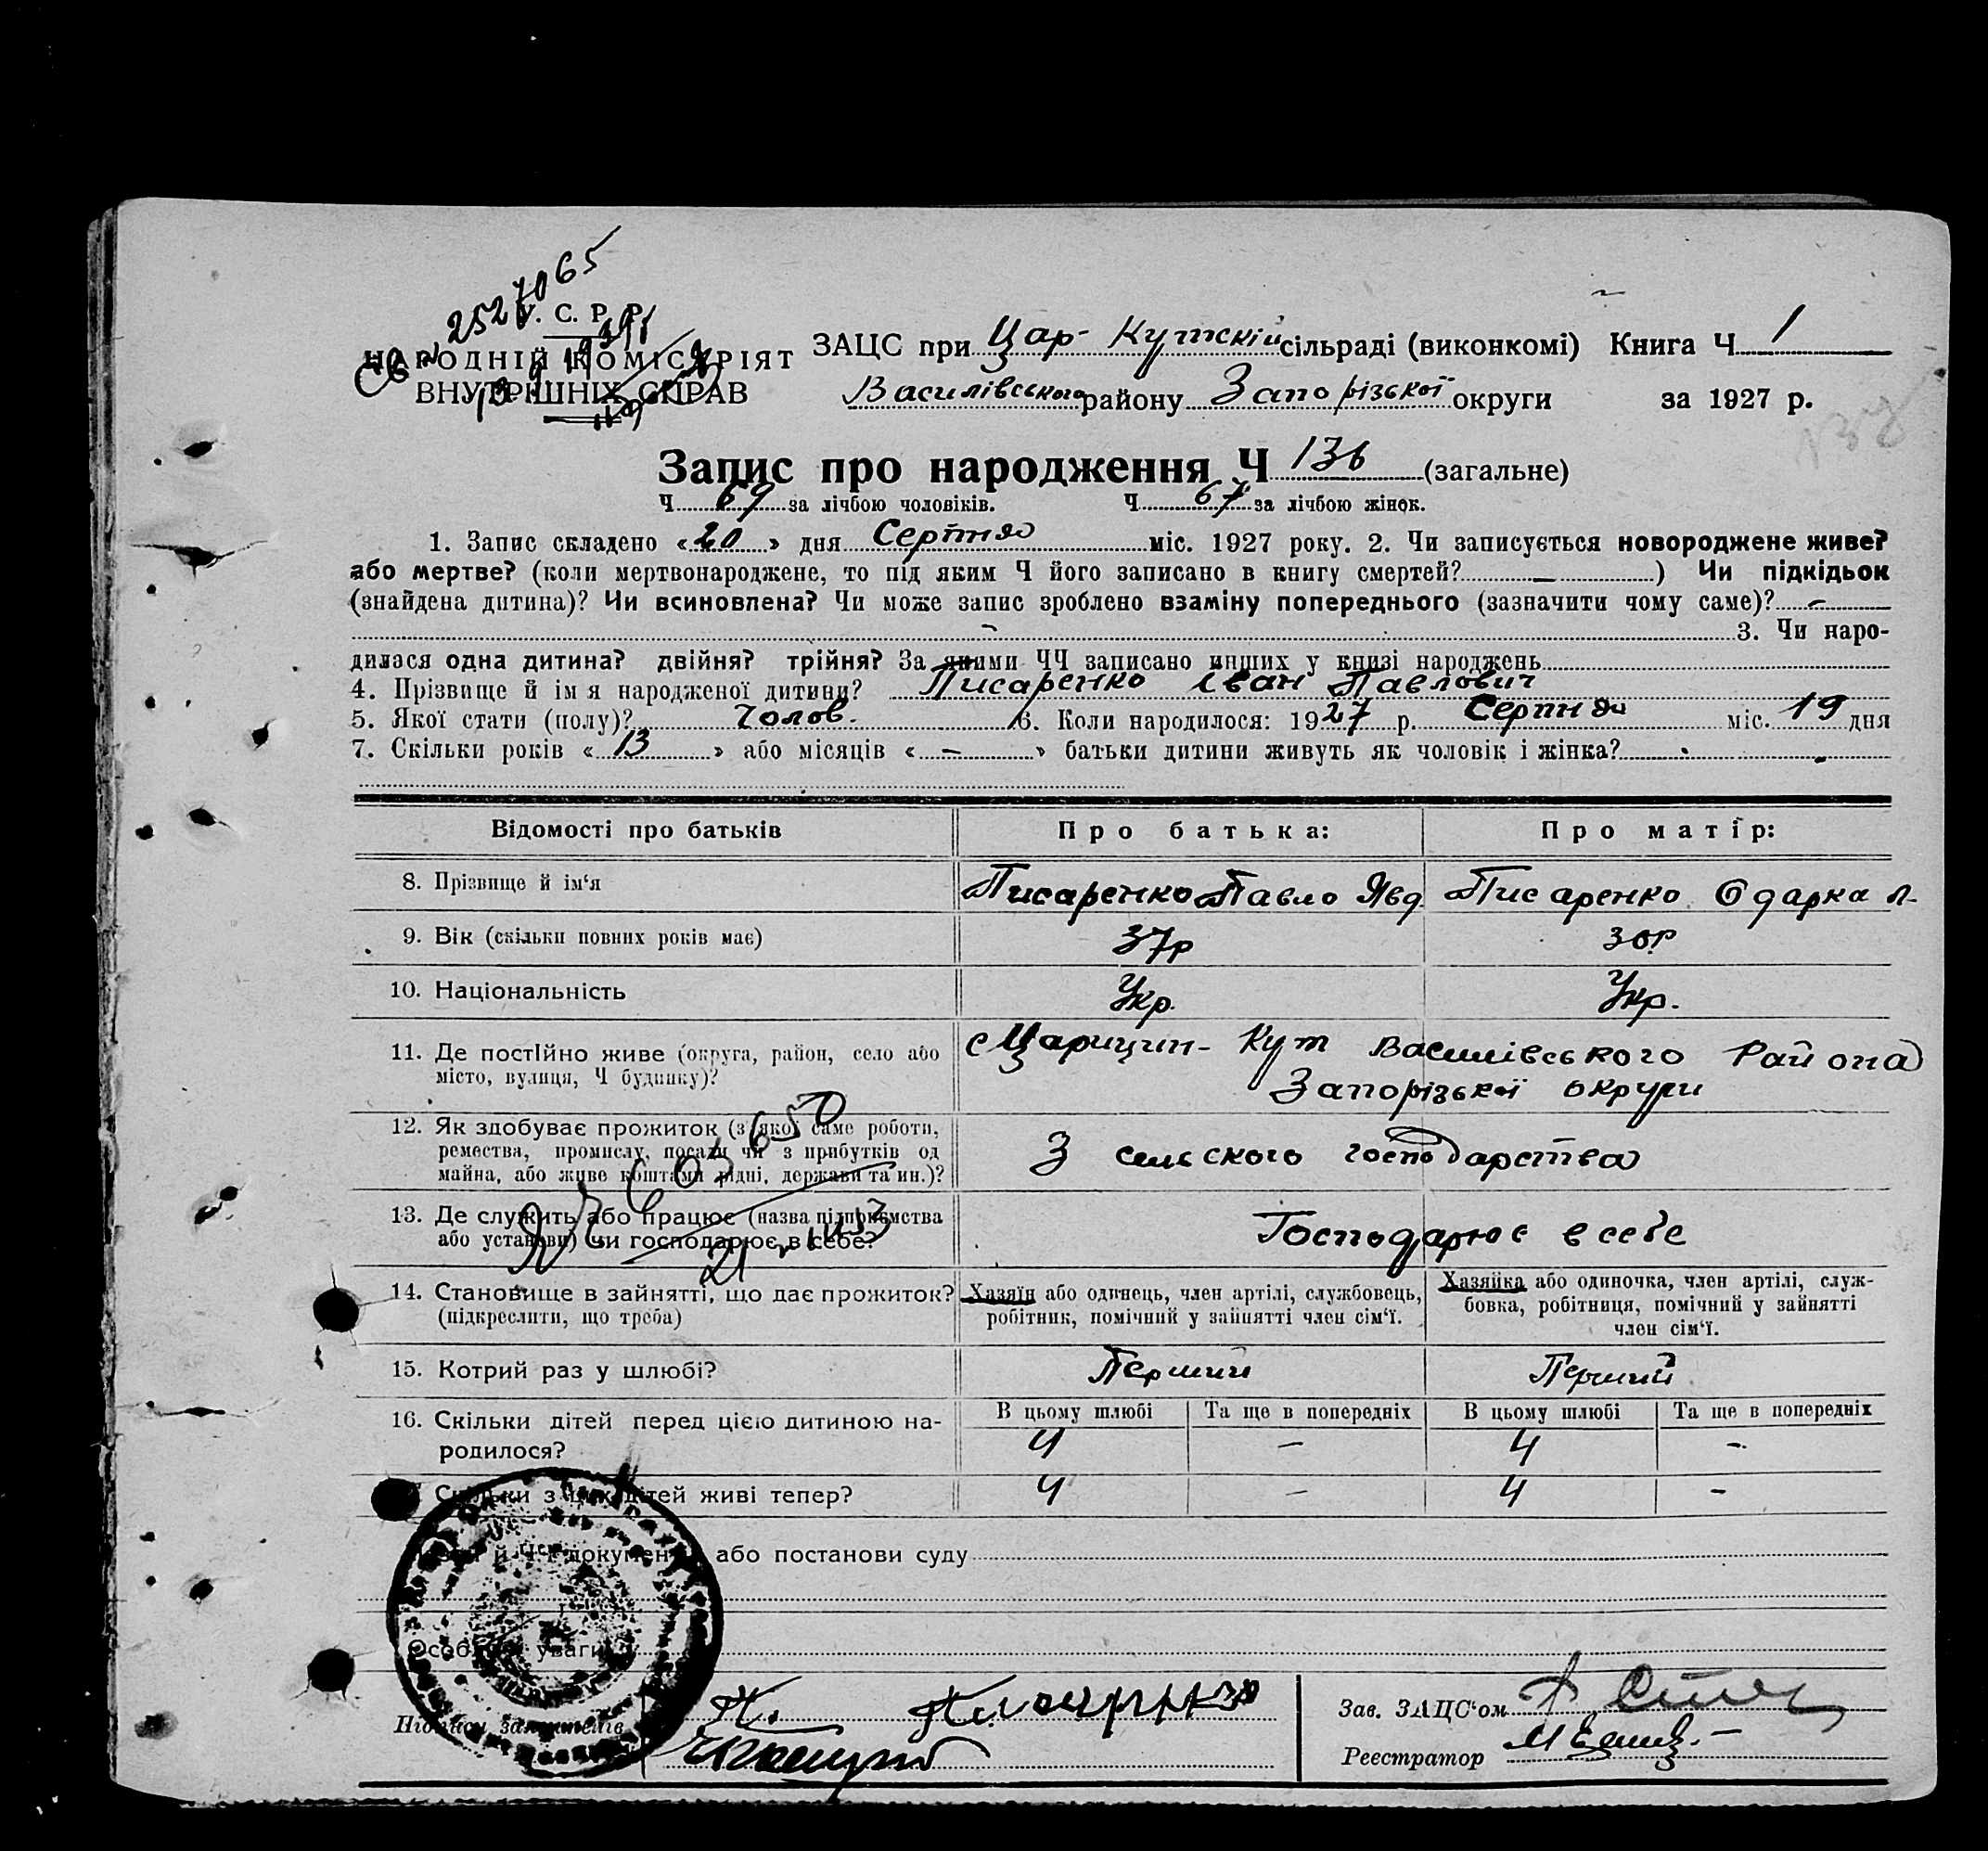 2527065
У. С. Р. Р.
НАРОДНІЙ КОМІСАРІЯТ
ВНУТРІШНІХ СПРАВ
ЗАЦС при Цар-Кутскій сільраді (виконкомі) Книга Ч 1
Василівського району Запорізької округи за 1927 р.
Запис про народження Ч 136 (загальне)
Ч 69 за лічбою чоловіків. Ч 67 за лічбою жінок.
1. Запис складено «20» дня Серпня міс. 1927 року. 2. Чи записується новороджене живе?
або мертве? (коли мертвонароджене, то під яким Ч його записано в книгу смертей? —) Чи підкідьок
(знайдена дитина)? Чи всиновлена? Чи може запис зроблено взаміну попереднього (зазначити чому саме)? –
– 3. Чи наро-
дилася одна дитина? двійня? трійня? За якими ЧЧ записано инших у книзі народжень
4. Прізвище й ім я народженої дитини? Писаренко Іван Павлович
5. Якої стати (полу)? Чолов. 6. Коли народилося: 1927 р. Серпня міс. 19 дня
7. Скільки років «13» або місяців «–» батьки дитини живуть як чоловік і жінка?
Відомості про батьків Про батька: Про матір:
8. Прізвище й ім'я Писаренко Павло Явд Писаренко Одарка Л.
9. Вік (скільки повних років має) 37р 30р
10. Національність Укр. Укр.
11. Де постійно живе (округа, район, село або с Царицин-Кут Василівського Района
місто, вулиця, Ч будинку)? Запорізької округи
12. Як здобуває прожиток (з якої саме роботи,
ремества, промислу, посади чи з прибутків од З сельского господарства
майна, або живе коштами рідні, держави та ин.)?
13. Де служить або працює (назва підприємства
або установи) чи господарює в себе? Господарює в себе
14. Становище в зайнятті, що дає прожиток? Хазяїн або одинець, член артілі, службовець, Хазяйка або одиночка, член артілі, служ-
(підкреслити, що треба) робітник, помічний у зайнятті член сім'ї. бовка, робітниця, помічний у зайнятті
член сім'ї.
15. Котрий раз у шлюбі? Перший Перший
16. Скільки дітей перед цією дитиною на- В цьому шлюбі Та ще в попередніх В цьому шлюбі Та ще в попередніх
родилося? 4 – 4 –
Скільки з цих дітей живі тепер? 4 – 4 –
документів або постанови суду
Особливі уваги
Підписи заявителів
Зав. ЗАЦС'ом
Реєстратор